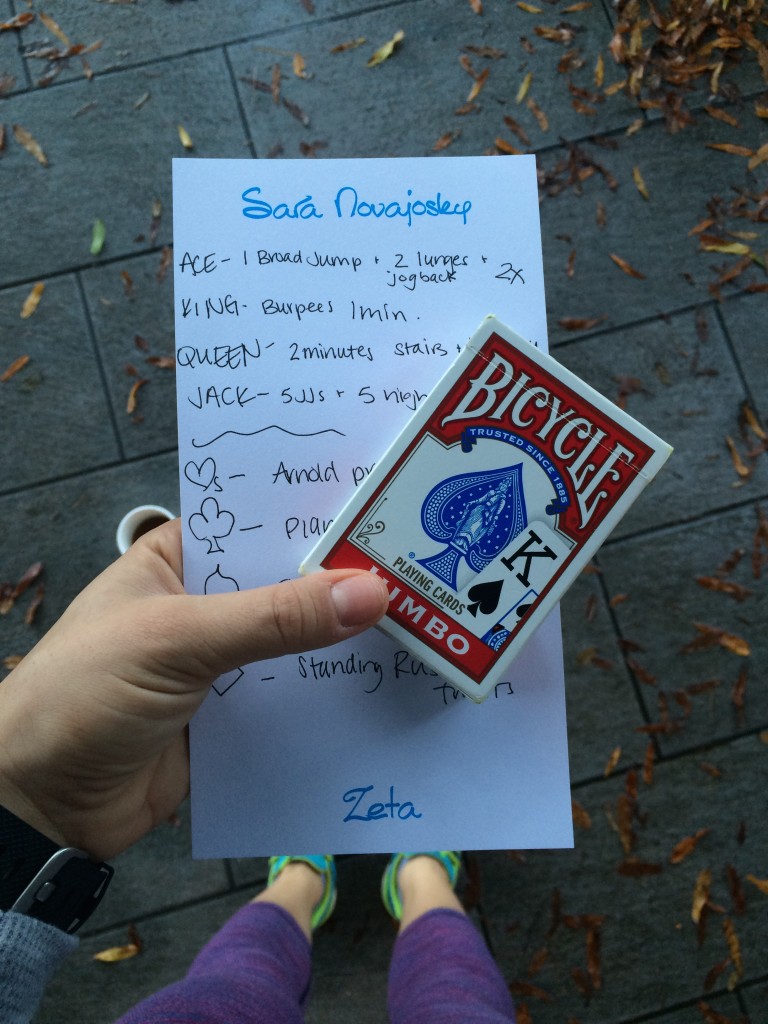 Sara Novajosky
ACE- 1 Broad Jump + 2 lunges +
jog back 2x
KING- Burpees 1 min.
QUEEN- 2 minutes stairs
JACK- 5JJs + 5 high
s - Arnold
-
- Standing
Zeta
BICYCLE
TRUSTED SINCE 1885
®
K
PLAYING CARDS
JUMBO